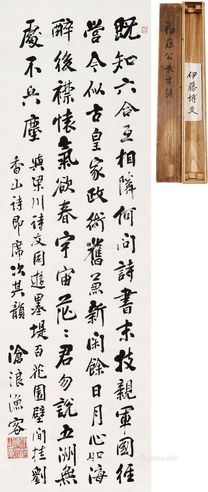 既知六合互相隣何問詩書末技親軍國經
營今似古皇家政術舊兼新閑餘日月心如海
醉後襟懷氣欲春宇宙茫々君勿說五洲無
處不兵塵
與梁川詩友同遊墨堤百花園壁間挂劉
香山詩即席次其韻
滄浪漁客
伊藤博文